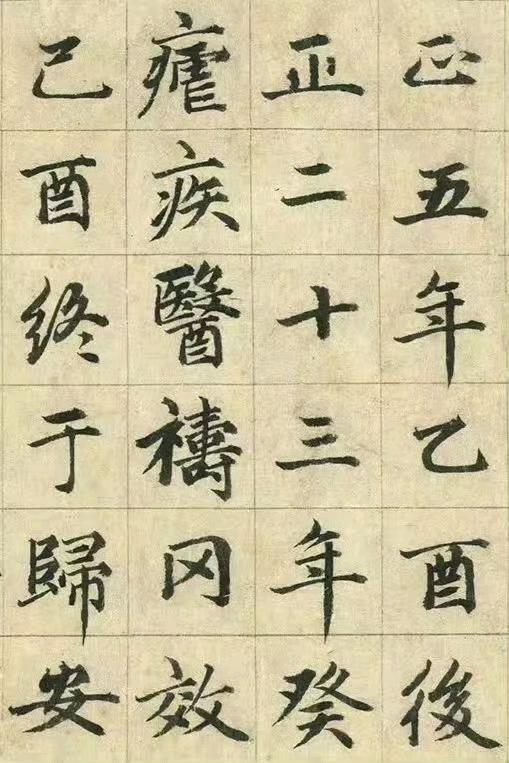 正五年乙酉後
正二十三年癸
瘧疾醫禱冈效
己酉終于歸安